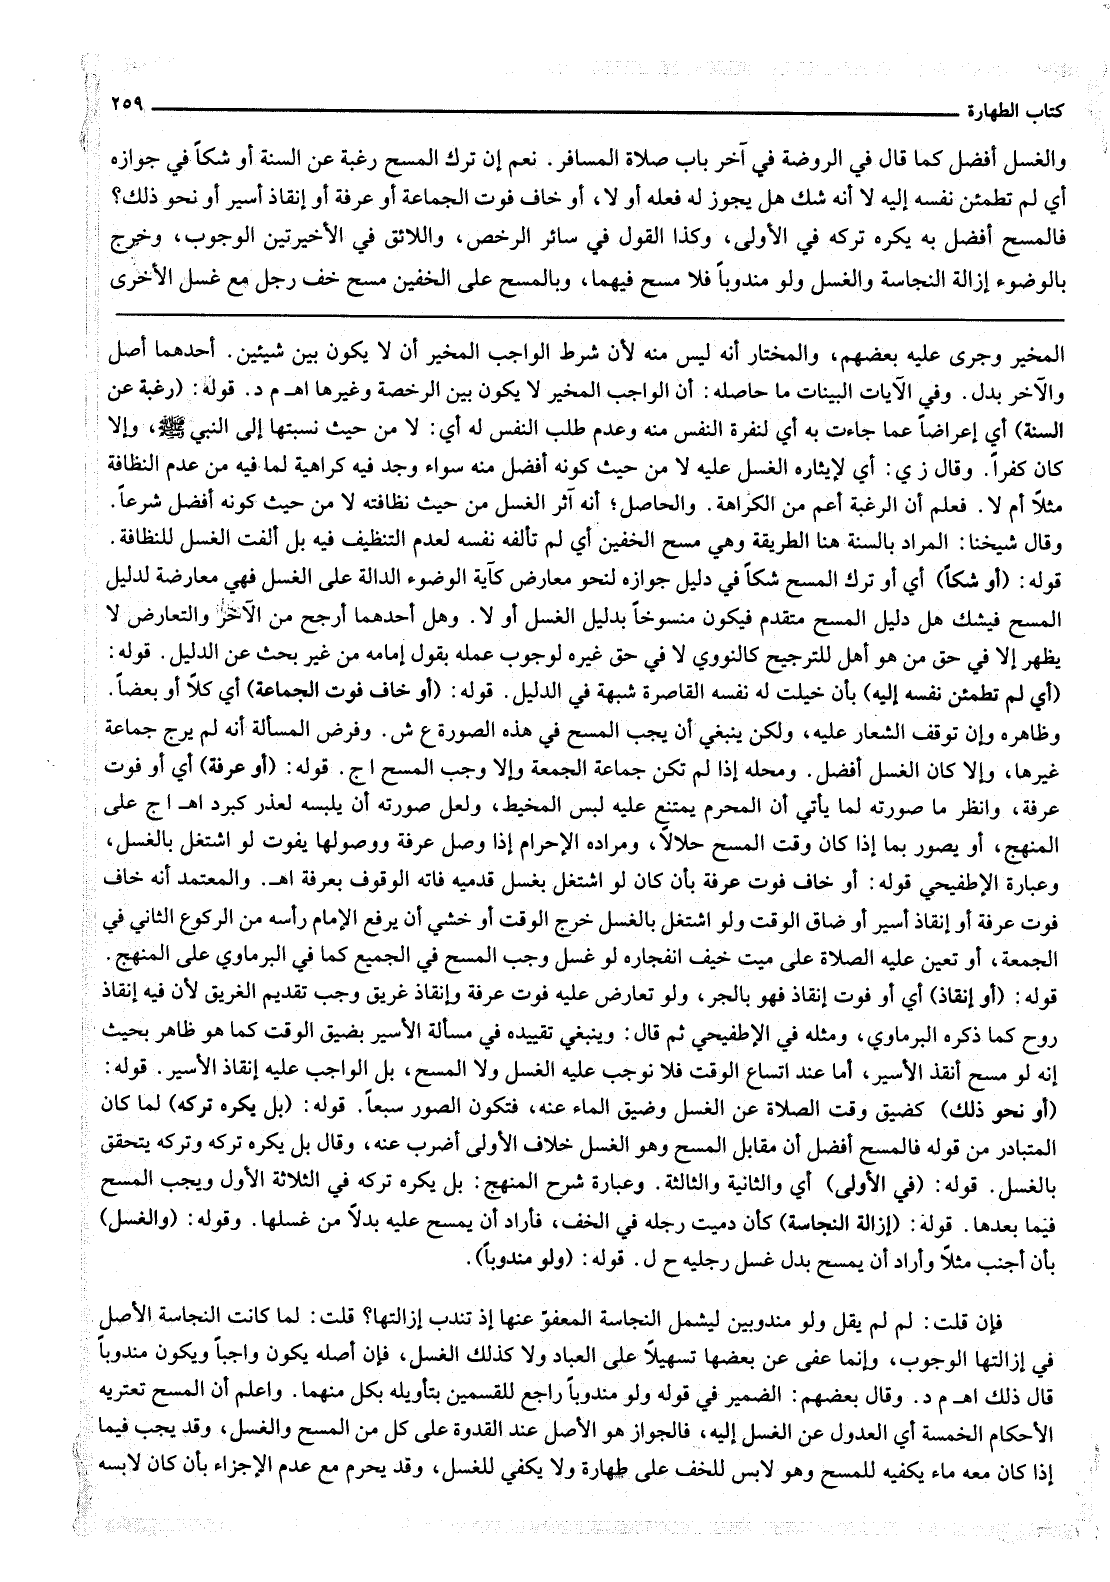 كتاب الطهارة ٢٥٩
والغسل أفضل كما قال في الروضة في آخر باب صلاة المسافر. نعم إن ترك المسح رغبة عن السنة أو شكاً في جوازه
أي لم تطمئن نفسه إليه لا أنه شك هل يجوز له فعله أو لا، أو خاف فوت الجماعة أو عرفة أو إنقاذ أسير أو نحو ذلك؟
فالمسح أفضل به يكره تركه في الأولى، وكذا القول في سائر الرخص، واللائق في الأخيرتين الوجوب، وخرج
بالوضوء إزالة النجاسة والغسل ولو مندوباً فلا مسح فيهما، وبالمسح على الخفين مسح خف رجل مع غسل الأخرى
المخير وجرى عليه بعضهم، والمختار أنه ليس منه لأن شرط الواجب المخير أن لا يكون بين شيئين. أحدهما أصل
والآخر بدل. وفي الآيات البينات ما حاصله: أن الواجب المخير لا يكون بين الرخصة وغيرها اهـ م د. قوله: (رغبة عن
السنة) أي إعراضاً عما جاءت به أي لنفرة النفس منه وعدم طلب النفس له أي: لا من حيث نسبتها إلى النبي ﷺ، وإلا
كان كفراً. وقال ز ي: أي لإيثاره الغسل عليه لا من حيث كونه أفضل منه سواء وجد فيه كراهية لما فيه من عدم النظافة
مثلاً أم لا. فعلم أن الرغبة أعم من الكراهة. والحاصل؛ أنه آثر الغسل من حيث نظافته لا من حيث كونه أفضل شرعاً.
وقال شيخنا: المراد بالسنة هنا الطريقة وهي مسح الخفين أي لم تألفه نفسه لعدم التنظيف فيه بل ألفت الغسل للنظافة.
قوله: (أو شكاً) أي أو ترك المسح شكاً في دليل جوازه لنحو معارض كآية الوضوء الدالة على الغسل فهي معارضة لدليل
المسح فيشك هل دليل المسح متقدم فيكون منسوخاً بدليل الغسل أو لا. وهل أحدهما أرجح من الآخر والتعارض لا
يظهر إلا في حق من هو أهل للترجيح كالنووي لا في حق غيره لوجوب عمله بقول إمامه من غير بحث عن الدليل. قوله:
(أي لم تطمئن نفسه إليه) بأن خيلت له نفسه القاصرة شبهة في الدليل. قوله: (أو خاف فوت الجماعة) أي كلاً أو بعضاً.
وظاهره وإن توقف الشعار عليه، ولكن ينبغي أن يجب المسح في هذه الصورة ع ش. وفرض المسألة أنه لم يرج جماعة
غيرها، وإلا كان الغسل أفضل. ومحله إذا لم تكن جماعة الجمعة وإلا وجب المسح ا ج. قوله: (أو عرفة) أي أو فوت
عرفة، وانظر ما صورته لما يأتي أن المحرم يمتنع عليه لبس المخيط، ولعل صورته أن يلبسه لعذر كبرد اهـ ا ج على
المنهج، أو يصور بما إذا كان وقت المسح حلالاً، ومراده الإحرام إذا وصل عرفة ووصولها يفوت لو اشتغل بالغسل،
وعبارة الإطفيحي قوله: أو خاف فوت عرفة بأن كان لو اشتغل بغسل قدميه فاته الوقوف بعرفة اهـ. والمعتمد أنه خاف
فوت عرفة أو إنقاذ أسير أو ضاق الوقت ولو اشتغل بالغسل خرج الوقت أو خشي أن يرفع الإمام رأسه من الركوع الثاني في
الجمعة، أو تعين عليه الصلاة على ميت خيف انفجاره لو غسل وجب المسح في الجميع كما في البرماوي على المنهج.
قوله: (أو إنقاذ) أي أو فوت إنقاذ فهو بالجر، ولو تعارض عليه فوت عرفة وإنقاذ غريق وجب تقديم الغريق لأن فيه إنقاذ
روح كما ذكره البرماوي، ومثله في الإطفيحي ثم قال: وينبغي تقييده في مسألة الأسير بضيق الوقت كما هو ظاهر بحيث
إنه لو مسح أنقذ الأسير، أما عند اتساع الوقت فلا نوجب عليه الغسل ولا المسح، بل الواجب عليه إنقاذ الأسير. قوله:
(أو نحو ذلك) كضيق وقت الصلاة عن الغسل وضيق الماء عنه، فتكون الصور سبعاً. قوله: (بل يكره تركه) لما كان
المتبادر من قوله فالمسح أفضل أن مقابل المسح وهو الغسل خلاف الأولى أضرب عنه، وقال بل يكره تركه وتركه يتحقق
بالغسل. قوله: (في الأولى) أي والثانية والثالثة. وعبارة شرح المنهج: بل يكره تركه في الثلاثة الأول ويجب المسح
فيما بعدها. قوله: (إزالة النجاسة) كأن دميت رجله في الخف، فأراد أن يمسح عليه بدلاً من غسلها. وقوله: (والغسل)
بأن أجنب مثلاً وأراد أن يمسح بدل غسل رجليه ح ل. قوله: (ولو مندوباً).
فإن قلت: لم لم يقل ولو مندوبين ليشمل النجاسة المعفوّ عنها إذ تندب إزالتها؟ قلت: لما كانت النجاسة الأصل
في إزالتها الوجوب، وإنما عفى عن بعضها تسهيلاً على العباد ولا كذلك الغسل، فإن أصله يكون واجباً ويكون مندوباً
قال ذلك اهـ م د. وقال بعضهم: الضمير في قوله ولو مندوباً راجع للقسمين بتأويله بكل منهما. واعلم أن المسح تعتريه
الأحكام الخمسة أي العدول عن الغسل إليه، فالجواز هو الأصل عند القدوة على كل من المسح والغسل، وقد يجب فيما
إذا كان معه ماء يكفيه للمسح وهو لابس للخف على طهارة ولا يكفي للغسل، وقد يحرم مع عدم الإجزاء بأن كان لابسه